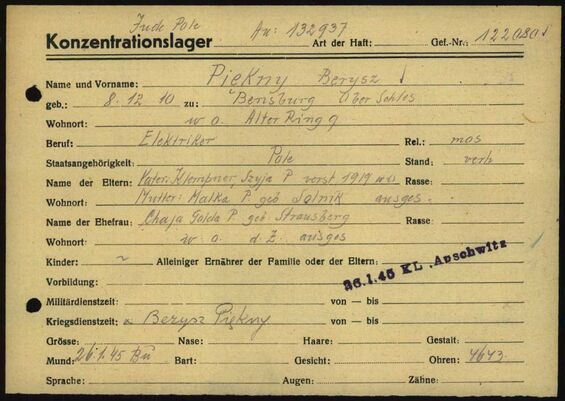 Jude Pole Au: 132937
Konzentrationslager Art der Haft: Gef.-Nr.: 122080
Name und Vorname: Piękny Berysz
geb.: 8.12.10 zu: Bensburg Ober Schles
Wohnort: w o. Alter Ring 9
Beruf: Elektriker Rel.: mos
Staatsangehörigkeit: Pole Stand: verh
Name der Eltern: Vater: Klempner, Szyja P verst 1919 Rasse:
Wohnort: Mutter: Malka P geb ausges.
Name der Ehefrau: Chaja Golda P. geb Strausberg Rasse:
Wohnort: w. o. d. Z. ausges
Kinder: ~ Alleiniger Ernährer der Familie oder der Eltern:
Vorbildung: 26.1.45 KL. Auschwitz
Militärdienstzeit: von — bis
Kriegsdienstzeit: x Berysz Piękny von — bis
Grösse: Nase: Haare: Gestalt:
Mund: 26.1.45 Bu Bart: Gesicht: Ohren: 4643
Sprache: Augen: Zähne: